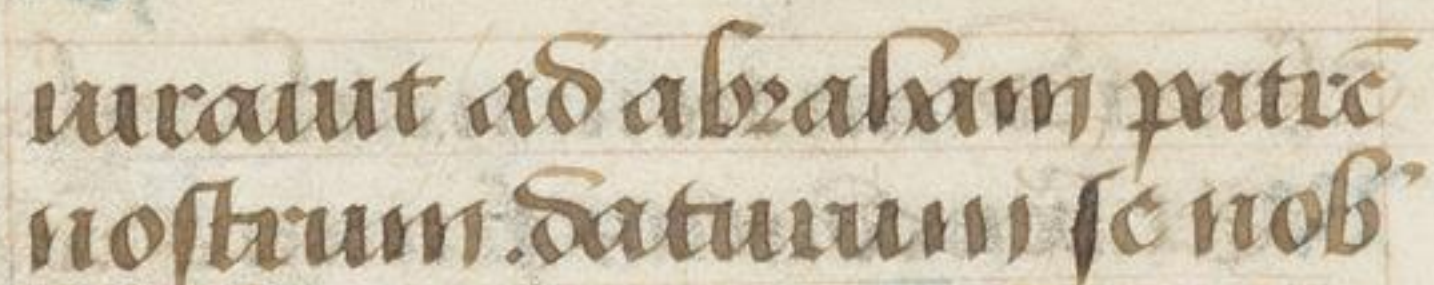 iurauit ad abraham patrē
nostrum . daturum se nob'